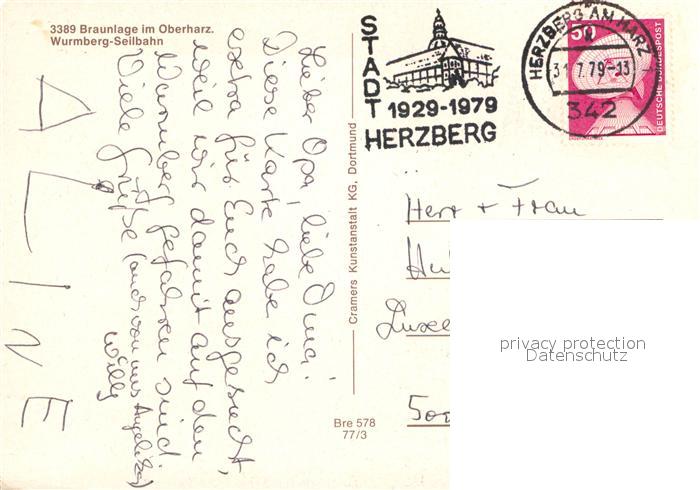 3389 Braunlage im Oberharz.
Wurmberg-Seilbahn
STADT
1929-1979
HERZBERG
HERZBERG AM HARZ
7.79-13
342
50
DEUTSCHE BUNDESPOST
Lieber Opa, liebe Omi!
Diese Karte habe ich
extra für Euch ausgesucht,
weil wir damit auf den
Wurmberg gefahren sind.
Viele
Grüße (auch von uns Angelika,
Willy
ALINE
Cramers Kunstanstalt KG, Dortmund
Bre 578
77/3
Herr + Frau
privacy protection
Datenschutz